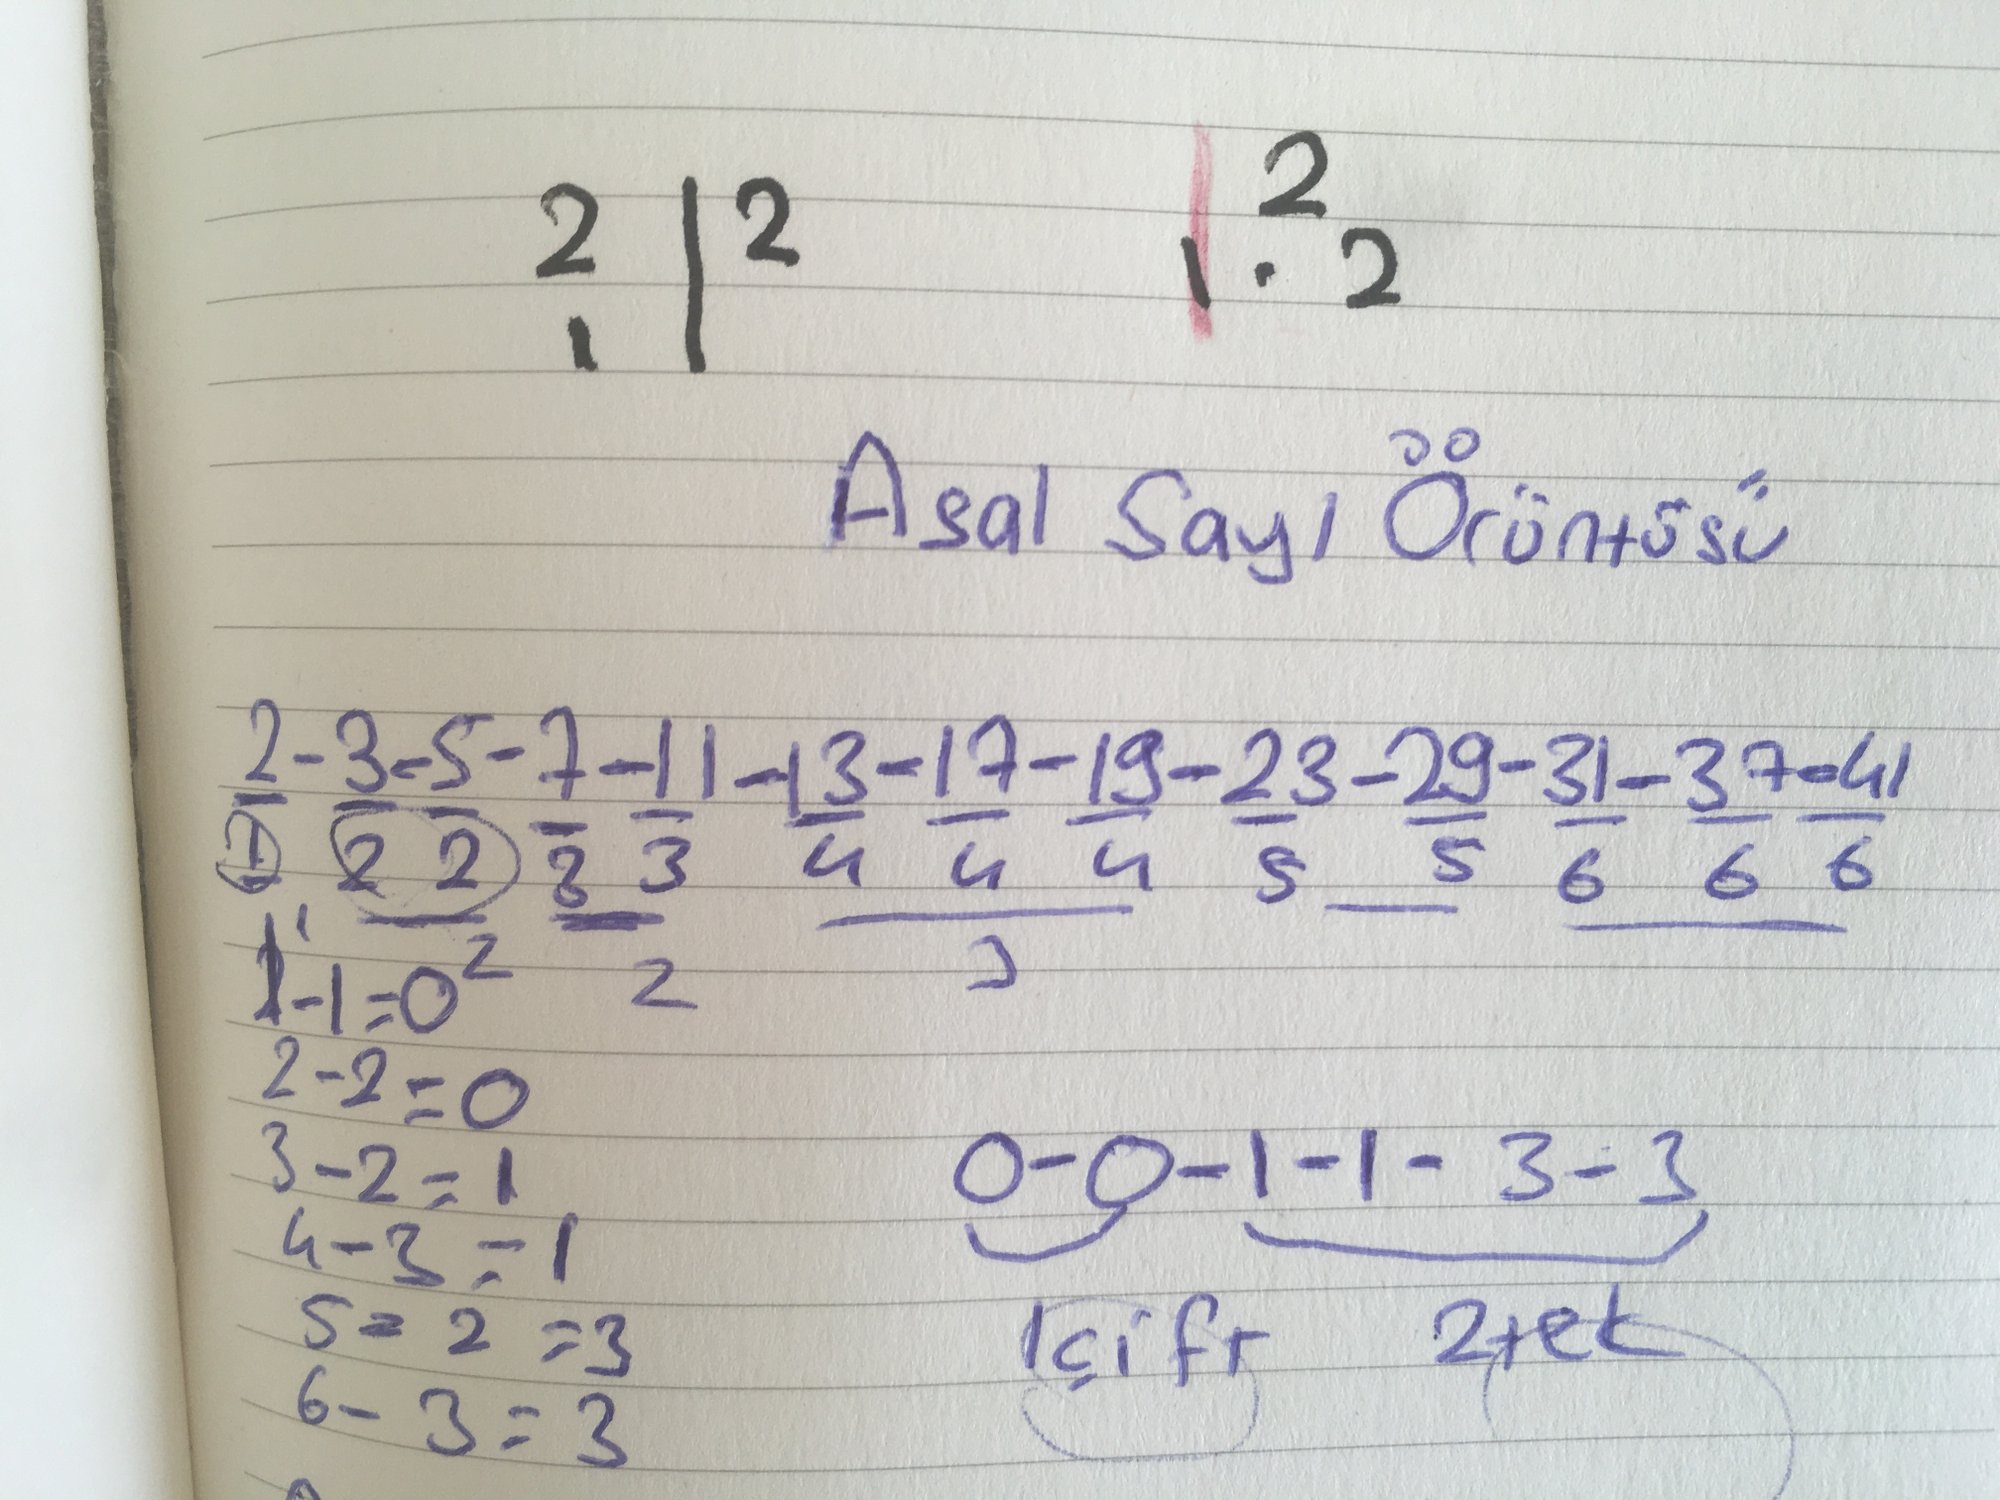 2 | 2 2
1 1 · 2
Asal Sayı Örüntüsü
2-3-5-7-11-13-17-19-23-29-31-37-41
1 2 2 3 3 4 4 4 5 5 6 6 6
2 2 3
1-1=0
2-2=0
3-2=1 0-0-1-1-3-3
4-3=1
5=2=3 1çift 2tek
6-3=3